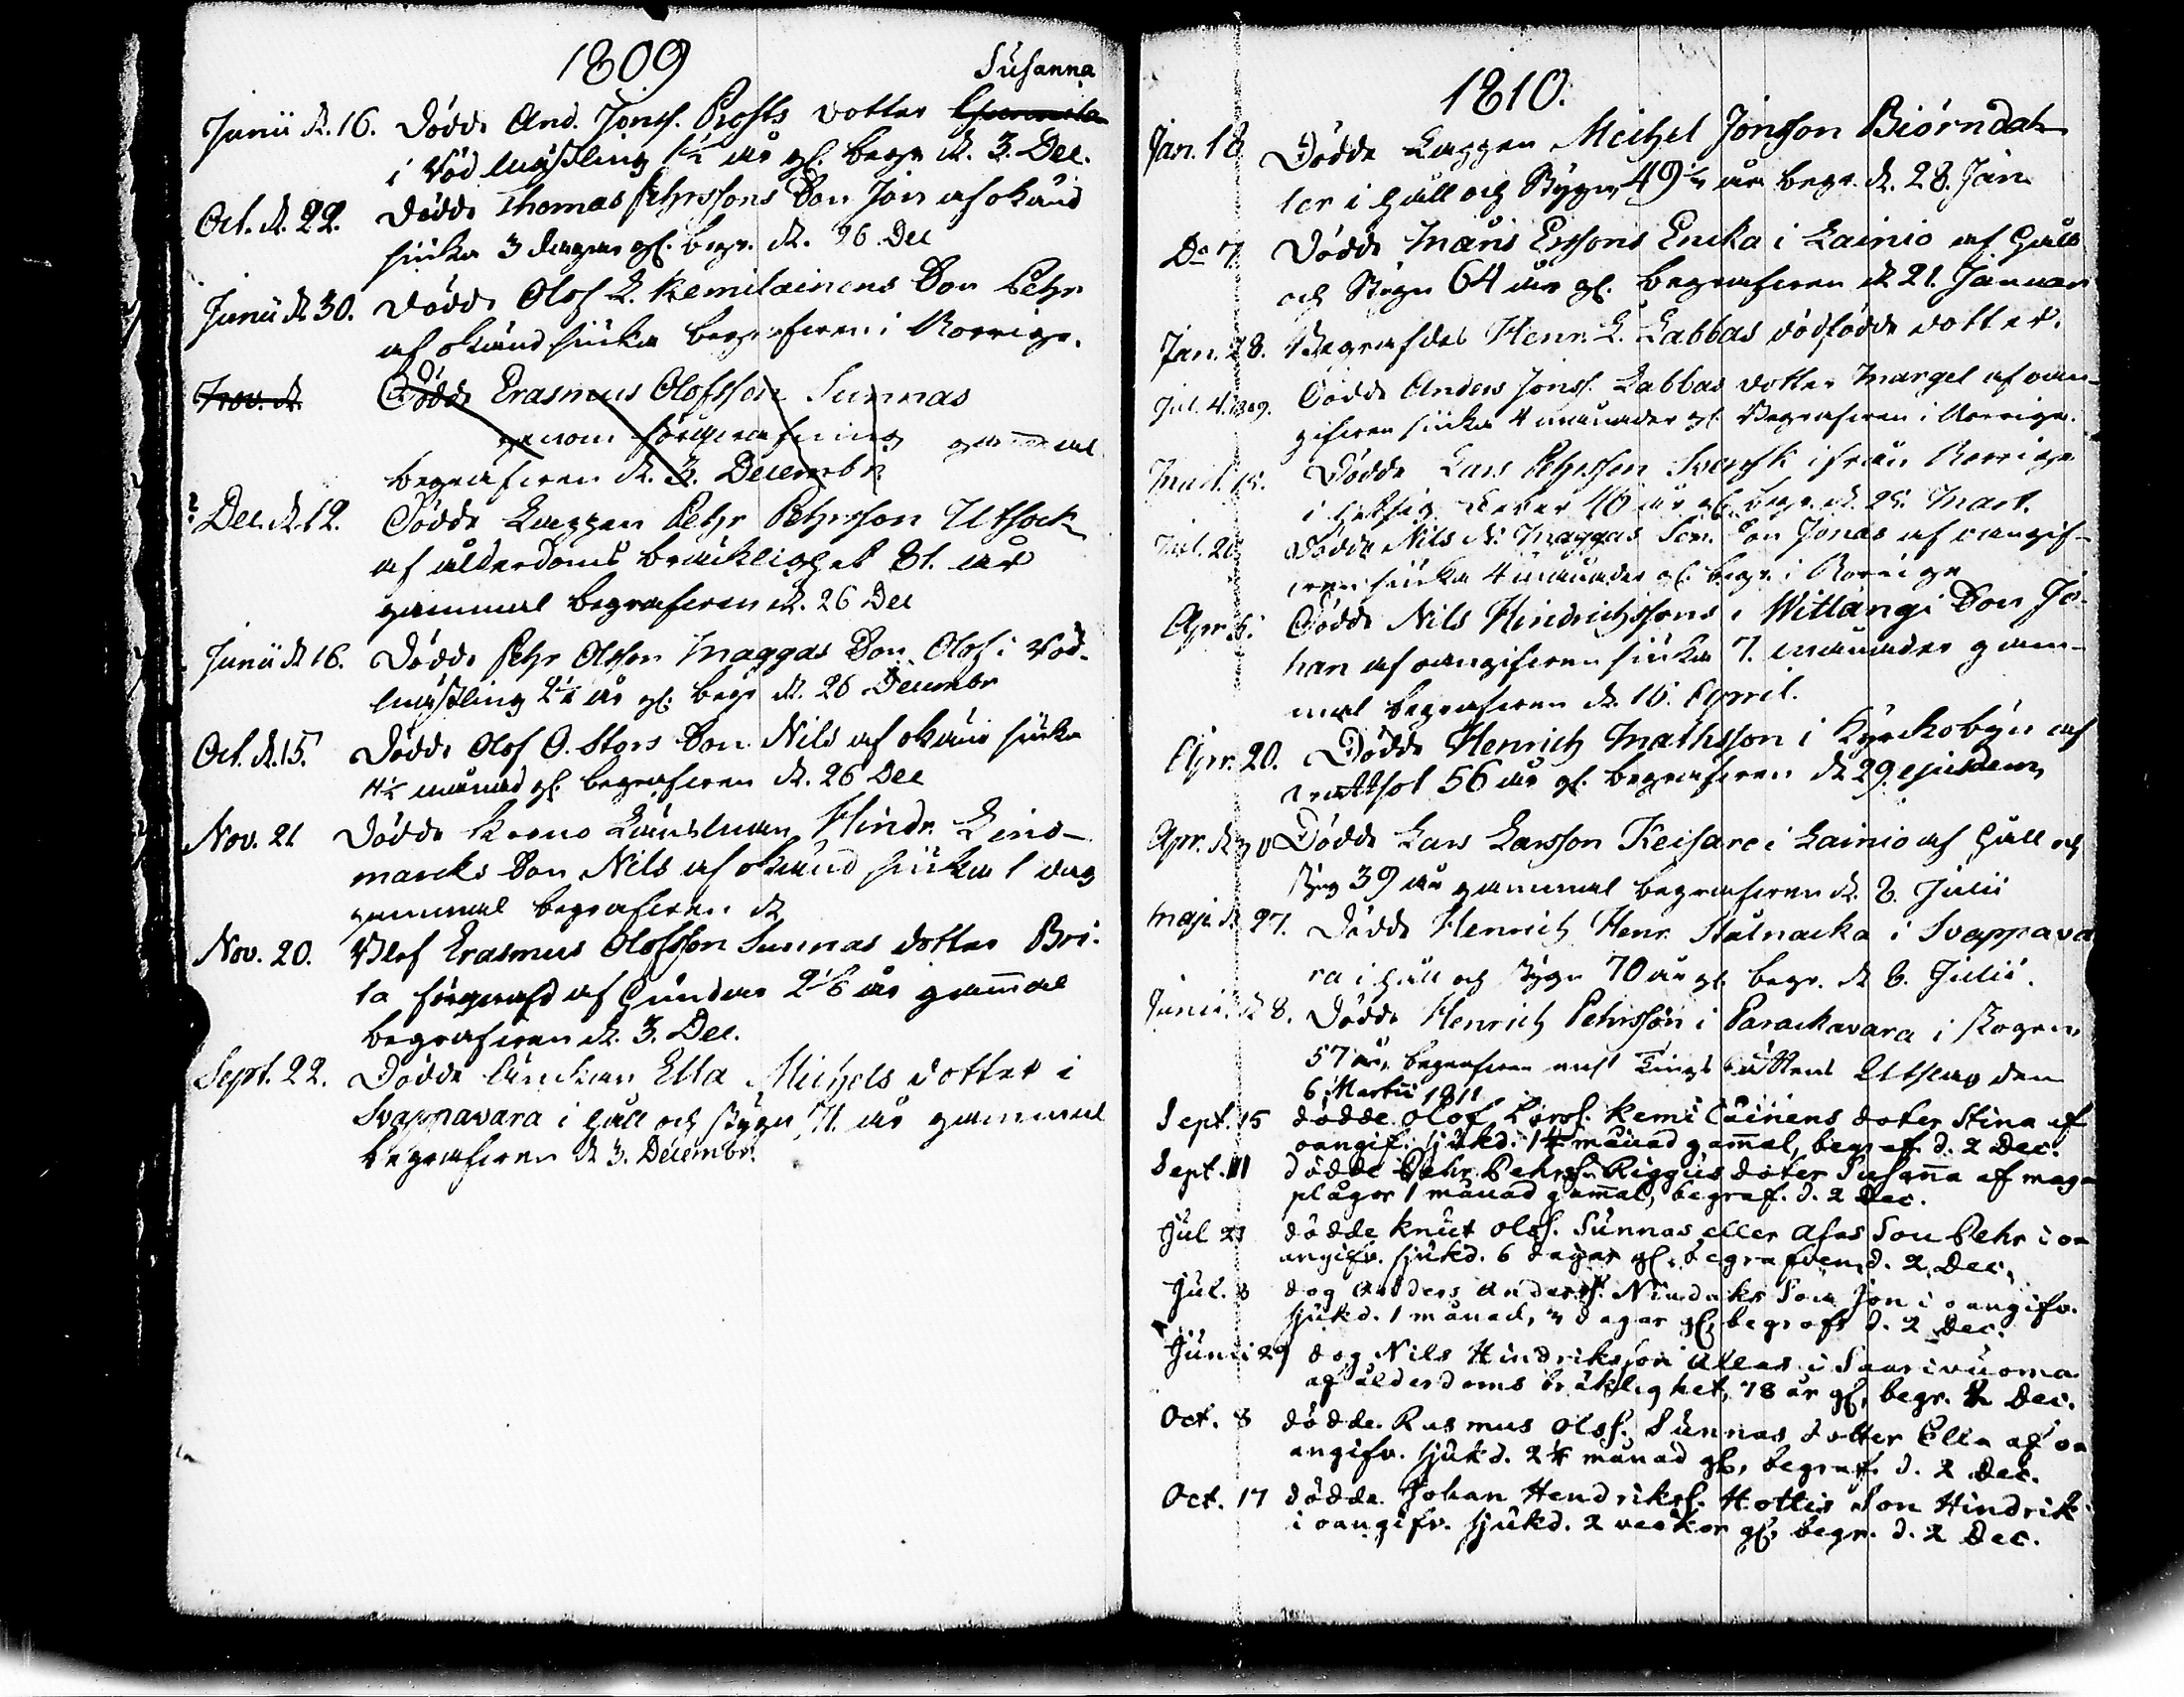 1809
Susanna
Junii d. 16. Dödde And. Jonss. Prosts dotter
i Röd Mässling 1½ år gl. begr d. 3. Dec.
Oct. d. 22. Dödde Thomas Pehrssons Son Jon af okänd
siuka 3 dagar gl. begr. d. 26 Dec
Junii d. 30. Dödde Olof L. Kemiläinens Son Pehr
af okänd siuka begrafven i Norrige.
Nov. d. Dödde Erasmus Olofsson Sunnas
genom gammal
begrafven d. 3. Decembr.
Dec. d. 12. Dödde Lappen Pehr Pehrsson Utsock
af ålderdoms bräcklighet 81. år
gammal begrafven d. 26 Dec
Junii d 16. Dödde Pehr Olsson Maggas Son Olof i Röd-
mässling 2½ år gl. begr d. 26 Decembr
Oct. d. 15. Dödde Olof O. Stors Son Nils af okänd siuka
månad gl. begrafven d. 26 Dec
Nov. 21 Dödde Krono Länsman Hindr. Lind-
marcks Son Nils af okänd siuka 1 dag
gammal begrafven d
Nov. 20. Blef Erasmus Olofsson Sunnas dotter Bri-
ta af Hundar år gammal
begrafven d. 3. Dec.
Sept. 22. Dödde Änckan Ella Michels dotter i
Svappavara i Håll och Stygn 71. år gammal
begrafven d 3. Decembr.
1810.
Jan. 18 Dödde Lappen Michel Jonsson Biörndah-
ler i Håll och Stygn 49½ år begr. d. 28. Jan.
Do 7 Dödde Måns Erssons Encka i Lainio af Håll
och Stygn 64 år gl. begrafven d 21. Januari
Jan. 28. Begrafdes Henr. L. Labbas dödfödde dotter.
Jul. 4. 1809. Dödde Anders Jonss. Labbas dotter Margel af oan-
gifven siuka 4 månader gl. Begrafven i Norrige.
Mart. 15. Dödde Lars Pehrsson Svensk ifrån Norrige
i hetsig Feber 40 år gl. begr. d. 25. Mart.
Jul. 20 Dödde Nils N. Maggas Son Jonas af oangif-
ven siuka 4 månader gl. begr. i Norrige
Apr. 5. Dödde Nils Hindrichssons i Wittangi Son Jo-
han af oangifven siuka 7. månader gam-
mal begrafven d. 16. April.
Apr. 20. Dödde Henrich Mathsson i Kyrckobyn af
rattsot 56 år gl. begrafven d 29. ejusdem
Apr. d. 30 Dödde Lars Larsson Keisare i Lainio af Håll och
Styng 39 år gammal begrafven d. 8. Julii
Maji d. 27. Dödde Henrich Henr. Stålnacka i Svappava
ra i Håll och Stygn 70 år gl. begr. d 8. Julii.
Junii. d 8. Dödde Henrich Pehrsson i Parackavara i Skogen
57 år, begrafven enl Tings Rättens Utslag den
6 Martii 1811
Sept. 15 dödde Olof Larss. Kemiläinens doter Stina af
oangif. sjukd. månad gammal, begraf. d. 2 Dec.
Sept. 11 dödde Pehr Pehrss. Riggus doter Susanna af mag-
plågor 1 månad gammal, begraf. d. 2 Dec.
Jul 23 dödde Knut Olss. Sunnas eller Asas Son Pehr i oa
angifv. sjukd. 6 dagar gl. begrafven d. 2 Dec.
Jul. 8 dog Anders Anderss. Son Jon i oangifv.
sjukd. 1 månad, 3 dagar gl. begrafv d. 2 Dec.
Junii 29 dog Nils Hindriksson Allas i Saarivuoma
af ålderdoms bräklighet, 78 år gl, begr. 2 Dec.
Oct. 8 dödde Rasmus Olss. Sunnas dotter Ella af oa
angifv. sjukd. månad gl., begraf. d. 2 Dec.
Oct. 17 dödde Johan Hendrikss. Hottis Son Hindrik
i oangifv. sjukd. 2 veckor gl, begr. d. 2 Dec.